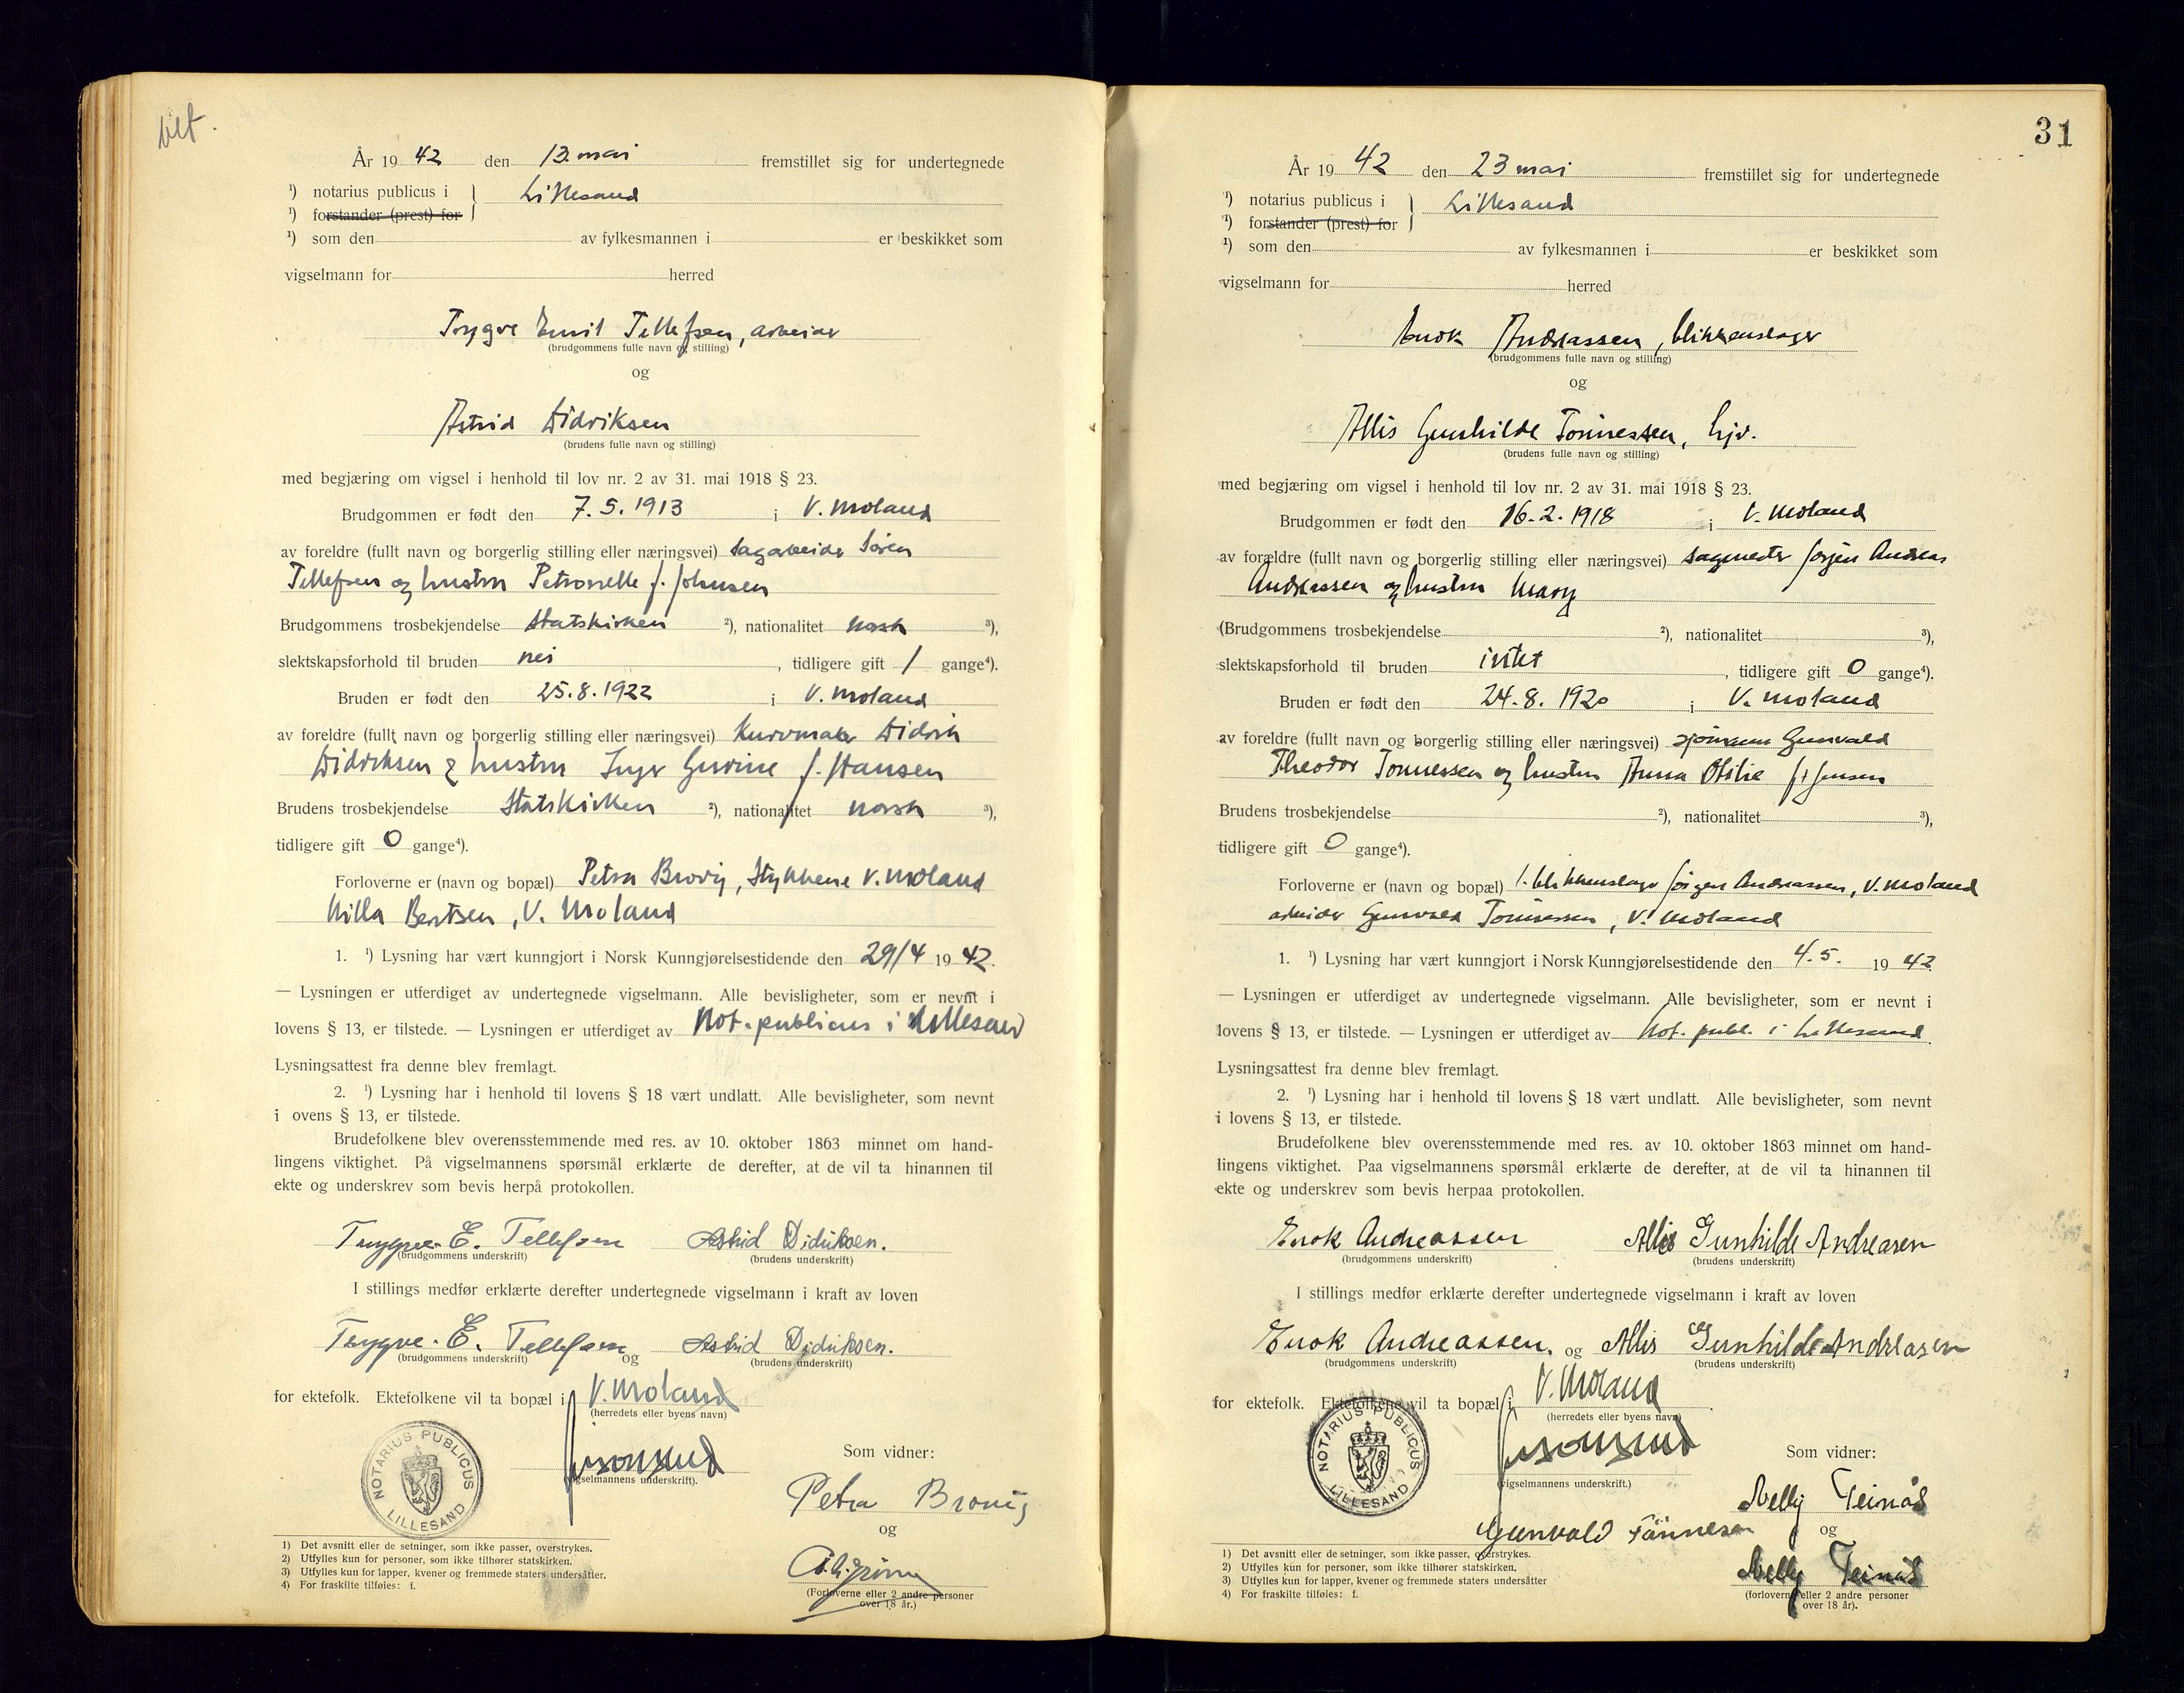 vet.
År 19 42 den 13. mai fremstillet sig for undertegnede
¹) notarius publicus i } Lillesand
¹) forstander (prest) for
¹) som den av fylkesmannen i er beskikket som
vigselmann for herred
Trygve Emil Tellefsen, arbeider
(brudgommens fulle navn og stilling)
og
Astrid Didriksen
(brudens fulle navn og stilling)
med begjæring om vigsel i henhold til lov nr. 2 av 31. mai 1918 § 23.
Brudgommen er født den 7.5.1913 i V. Moland
av foreldre (fullt navn og borgerlig stilling eller næringsvei) sagarbeider Søren
Tellefsen og hustru Petronelle f. Johnsen
Brudgommens trosbekjendelse Statskirken ²), nationalitet norsk ³),
slektskapsforhold til bruden nei , tidligere gift 1 gange⁴).
Bruden er født den 25.8.1922 i V. Moland
av foreldre (fullt navn og borgerlig stilling eller næringsvei) Kurvmaker Didrik
Didriksen & hustru Inger Gurine f. Hansen
Brudens trosbekjendelse Statskirken ²), nationalitet norsk ³),
tidligere gift 0 gange⁴).
Forloverne er (navn og bopæl) Petra Brovig, Stykkene V. Moland
Milla Bentsen, V. Moland
1. ¹) Lysning har vært kunngjort i Norsk Kunngjørelsestidende den 29/4 19 42.
— Lysningen er utferdiget av undertegnede vigselmann. Alle bevisligheter, som er nevnt i
lovens § 13, er tilstede. — Lysningen er utferdiget av Not. publicus i Lillesand
Lysningsattest fra denne blev fremlagt.
2. ¹) Lysning har i henhold til lovens § 18 vært undlatt. Alle bevisligheter, som nevnt
i ovens § 13, er tilstede.
Brudefolkene blev overensstemmende med res. av 10. oktober 1863 minnet om hand-
lingens viktighet. På vigselmannens spørsmål erklærte de derefter, at de vil ta hinannen til
ekte og underskrev som bevis herpå protokollen.
Trygve E. Tellefsen Astrid Didriksen.
(brudgommens underskrift) (brudens underskrift)
I stillings medfør erklærte derefter undertegnede vigselmann i kraft av loven
Trygve E. Tellefsen og Astrid Didriksen.
(brudgommens underskrift) (brudens underskrift)
for ektefolk. Ektefolkene vil ta bopæl i V. Moland
(herredets eller byens navn)
NOTARIUS PUBLICUS LILLESAND
(vigselmannens underskrift).
Som vidner:
Petra Brovig
og
(Forloverne eller 2 andre personer
over 18 år.)
1) Det avsnitt eller de setninger, som ikke passer, overstrykes.
2) Utfylles kun for personer, som ikke tilhører statskirken.
3) Utfylles kun for lapper, kvener og fremmede staters undersåtter.
4) For fraskilte tilføies: f.
31
År 19 42 den 23 mai fremstillet sig for undertegnede
¹) notarius publicus i } Lillesand
¹) forstander (prest) for
¹) som den av fylkesmannen i er beskikket som
vigselmann for herred
Enok Andreassen, blikkenslager
(brudgommens fulle navn og stilling)
og
Allis Gunhilde Tønnessen, hjv.
(brudens fulle navn og stilling)
med begjæring om vigsel i henhold til lov nr. 2 av 31. mai 1918 § 23.
Brudgommen er født den 16.2.1918 i V. Moland
av forældre (fullt navn og borgerlig stilling eller næringsvei) sagmester Jørgen Andreas
Andreassen og hustru Mary
(Brudgommens trosbekjendelse ²), nationalitet ³),
slektskapsforhold til bruden intet , tidligere gift 0 gange⁴).
Bruden er født den 24.8.1920 i V. Moland
av foreldre (fullt navn og borgerlig stilling eller næringsvei) sjømann Gunvald
Theodor Tønnessen og hustru Anna Otilie f. Jensen
Brudens trosbekjendelse ²), nationalitet ³),
tidligere gift 0 gange⁴).
Forloverne er (navn og bopæl) 1. blikkenslager Jørgen Andreassen, V. Moland
arbeider Gunvald Tønnessen, V. Moland
1. ¹) Lysning har vært kunngjort i Norsk Kunngjørelsestidende den 4.5. 19 42
— Lysningen er utferdiget av undertegnede vigselmann. Alle bevisligheter, som er nevnt i
lovens § 13, er tilstede. — Lysningen er utferdiget av Not. publ. i Lillesand.
Lysningsattest fra denne blev fremlagt.
2. ¹) Lysning har i henhold til lovens § 18 vært undlatt. Alle bevisligheter, som nevnt
i lovens § 13, er tilstede.
Brudefolkene blev overensstemmende med res. av 10. oktober 1863 minnet om hand-
lingens viktighet. Paa vigselmannens spørsmål erklærte de derefter, at de vil ta hinannen til
ekte og underskrev som bevis herpaa protokollen.
Enok Andreassen Allis Gunhilde Andreasen
(brudgommens underskrift) (brudens underskrift)
I stillings medfør erklærte derefter undertegnede vigselmann i kraft av loven
Enok Andreassen. og Allis Gunhilde Andreasen
(brudgommens underskrift) (brudens underskrift)
for ektefolk. Ektefolkene vil ta bopæl i V. Moland
(herredets eller byens navn)
NOTARIUS PUBLICUS LILLESAND
(vigselmannens underskrift.)
Som vidner:
Nelly Teinås
Gunvald Tønnesen og
Nelly Teinås
(forloverne eller 2 andre personer
over 18 år).
1) Det avsnitt eller de setninger, som ikke passer, overstrykes.
2) Utfylles kun for personer, som ikke tilhører statskirken.
3) Utfylles kun for lapper, kvener og fremmede staters undersåtter
4) For fraskilte tilføies: f.